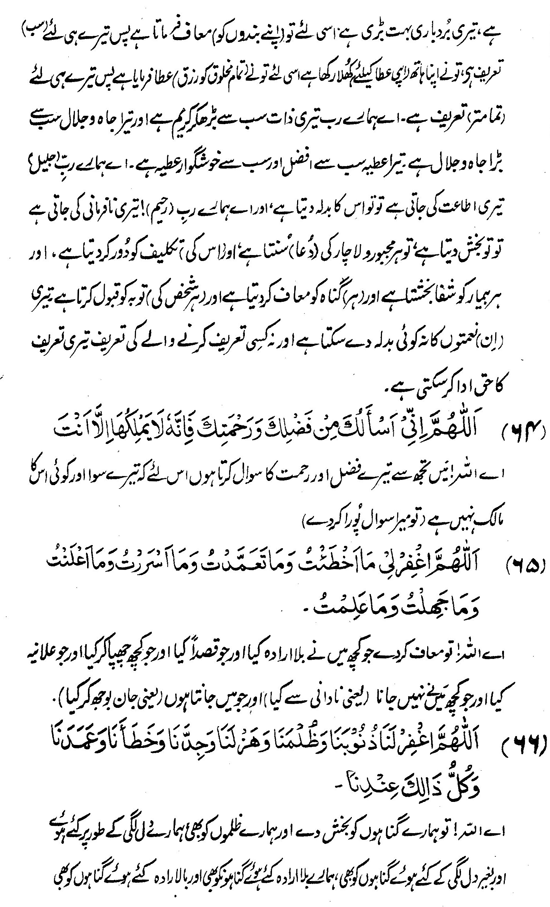 ہے، تیری بُردباری بہت بڑی ہے اسی لئے تو (اپنے بندوں کو) معاف فرماتا ہے پس تیرے ہی لئے (سب)
تعریف ہے، تونے اپنا ہاتھ (اپنی) عطا کیلئے کھلا رکھا ہے اسی لئے تونے تمام مخلوق کو (رزق) عطا فرمایا ہے پس تیرے ہی لئے
(تمام تر) تعریف ہے۔ اے ہمارے رب تیری ذات سب سے بڑھکر کریم ہے اور تیرا جاہ و جلال سب سے
بڑا جاہ و جلال ہے۔ تیرا عطیہ سب سے افضل اور سب سے خوشگوار عطیہ ہے۔ اے ہمارے ربِّ (جلیل)!
تیری اطاعت کی جاتی ہے تو تو اس کا بدلہ دیتا ہے، اور اے ہمارے ربِ (رحیم)! تیری نافرمانی کی جاتی ہے
تو تو بخش دیتا ہے، تو ہر مجبور و لاچار کی (دُعا) سُنتا ہے، اور (اس کی) تکلیف کو دُور کر دیتا ہے، اور
ہر بیمار کو شفا بخشتا ہے اور (ہر) گناہ کو معاف کر دیتا ہے اور (ہر شخص کی) توبہ کو قبول کرتا ہے، تیری
(اِن) نعمتوں کا نہ کوئی بدلہ دے سکتا ہے اور نہ کسی تعریف کرنے والے کی تعریف تیری تعریف
کا حق ادا کر سکتی ہے۔
(۶۴) اَللّٰهُمَّ اِنِّیْ اَسْأَلُكَ مِنْ فَضْلِكَ وَرَحْمَتِكَ فَاِنَّهٗ لَا یَمْلِكُهَا اِلَّا اَنْتَ
اے اللہ! میں تجھ سے تیرے فضل اور رحمت کا سوال کرتا ہوں اس لئے کہ تیرے سوا اور کوئی اس کا
مالک نہیں ہے (تو میرا سوال پُورا کر دے)
(۶۵) اَللّٰهُمَّ اغْفِرْ لِیْ مَا اَخْطَئْتُ وَمَا تَعَمَّدْتُ وَمَا اَسْرَرْتُ وَمَا اَعْلَنْتُ
وَمَا جَهِلْتُ وَمَا عَلِمْتُ۔
اے اللہ! تو معاف کر دے جو کچھ میں نے بلا ارادہ کیا اور جو قصداً کیا اور جو کچھ چھپا کر کیا اور جو علانیہ
کیا اور جو کچھ میں نے نہیں جانا (یعنی نادانی سے کیا) اور جو میں جانتا ہوں (یعنی جان بوجھ کر کیا)۔
(۶۶) اَللّٰهُمَّ اغْفِرْ لَنَا ذُنُوْبَنَا وَظُلْمَنَا وَهَزْلَنَا وَجِدَّنَا وَخَطَأَنَا وَعَمَدَنَا
وَكُلُّ ذَالِكَ عِنْدِنَا۔
اے اللہ! تو ہمارے گناہوں کو بخش دے اور ہمارے ظلموں کو بھی، ہمارے دل لگی کے طور پر کئے ہوئے
اور بغیر دل لگی کے کئے ہوئے گناہوں کو بھی، ہمارے بلا ارادہ کئے ہوئے گناہونکو بھی اور بالارادہ کئے ہوئے گناہوں کو بھی